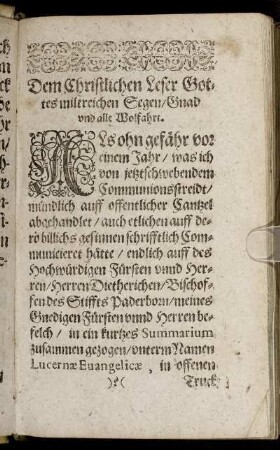 Dem Christlichen Leser Got-
tes miltreichen Segen/Gnad
vnd alle Wolfahrt.
ALs ohn gefähr vor
einem Jahr/ was ich
von jetztschwebendem
Communionsstreidt/
mündlich auff offentlicher Cantzel
abgehandlet/auch etlichen auff de-
ro billichs gesinnen schrifftlich Com-
municieret hätte/ endlich auff des
Hochwürdigen Fürsten vnnd Her-
ren/Herren Dietherichen/Bischof-
fen des Stiffts Paderborn/meines
Gnedigen Fürsten vnnd Herren be-
felch/ in ein kurtzes Summarium
zusammen gezogen/vnterm Namen
Lucernæ Euangelicæ, in offenen
Truck